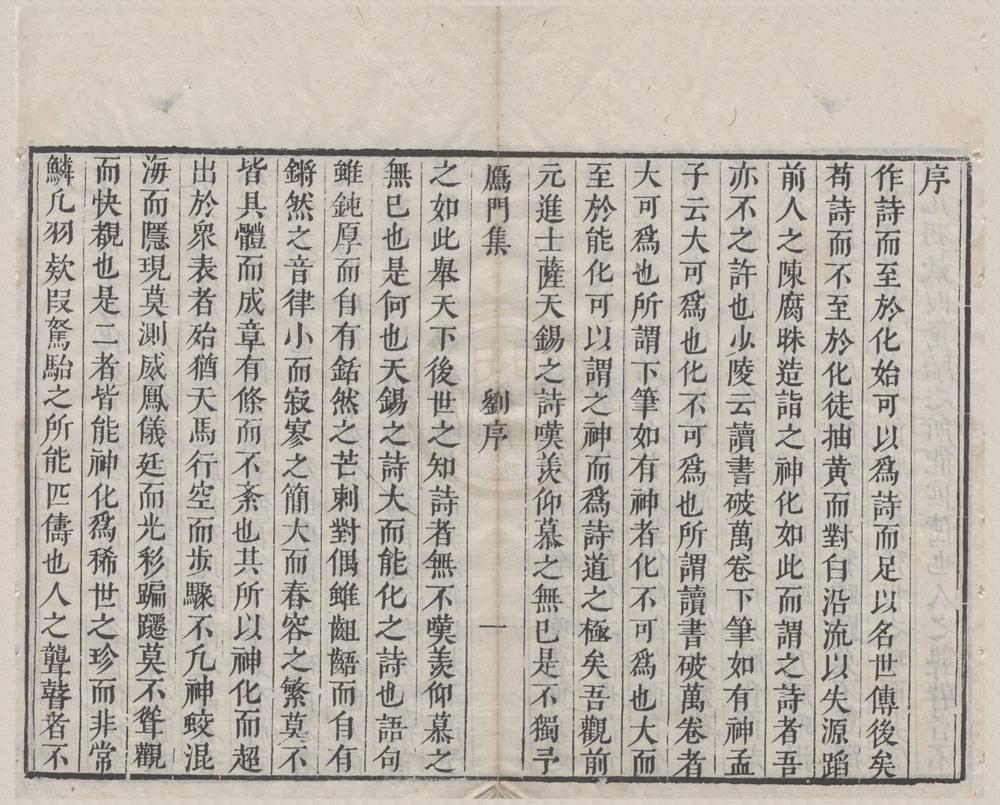 序
作詩而至於化始可以爲詩而足以名世傳後矣
茍詩而不至於化徒抽黃而對白沿流以失源蹈
前人之陳腐昧造詣之神化如此而謂之詩者吾
亦不之許也少陵云讀書破萬卷下筆如有神孟
子云大可爲也化不可爲也所謂讀書破萬卷者
大可爲也所謂下筆如有神者化不可爲也大而
至於能化可以謂之神而爲詩道之極矣吾觀前
元進士薩天錫之詩嘆羨仰慕之無已是不獨予
鴈門集 劉序 一
之如此舉天下後世之知詩者無不嘆羨仰慕之
無已也是何也天錫之詩大而能化之詩也語句
雖鈍厚而自有銛然之芒刺對偶雖齟齬而自有
鏘然之音律小而寂寥之簡大而舂容之繁莫不
皆具體而成章有條而不紊也其所以神化而超
出於衆表者殆猶天馬行空而步驟不凡神蛟混
海而隱現莫測威鳳儀廷而光彩蹁躚莫不聳觀
而快覩也是二者皆能神化爲稀世之珍而非常
鱗凡羽欸段駑駘之所能匹儔也人之聾瞽者不